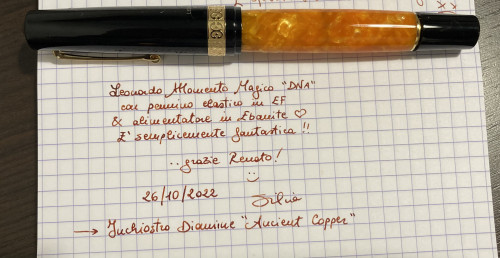 Leonardo Momento Magico "DNA"
con pennino elastico in EF
& alimentatore in Ebanite ♡
E' semplicemente fantastica !!
..grazie Renato!
:)
26/10/2022 Silvia
→ Inchiostro Diamine "Ancient Copper"